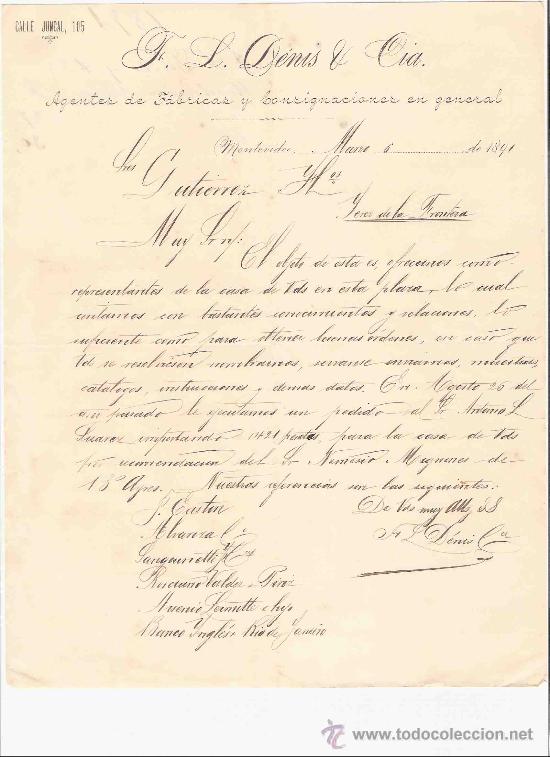 CALLE JUNCAL, 105
F. L. Dénis & Cia.
Agentes de Fábricas y Consignaciones en general
Montevideo, Marzo 6 de 1891
Sres
Gutierrez Hos
Jerez de la Frontera
Muy Sres nf:
El objeto de esta es, ofrecernos como
representantes de la casa de Vds en esta plaza, lo cual
contamos con bastantes conocimientos y relaciones, lo
suficiente como para obtener buenas órdenes, en caso que
Vd se resolviesen nombrarnos, sirvanse enviarnos, muestras,
catalogos, instrucciones y demas datos. En Agosto 26 del
a/n pasado le ejecutamos un pedido al Sr Antonio L
Suarez importando 1421 pesetas, para la casa de Vds
por recomendacion del Sr Nemesio Mignores de
Bs Ayres. Nuestras referencias son las siguientes:
De Vds muy Atts, SS
F L Dénis Cia
J. Caston
Abanza Ca
Sanguinetti Hos
Rosciano Valdez Perez
Banco Inglés Rio de Janeiro
www.todocoleccion.net